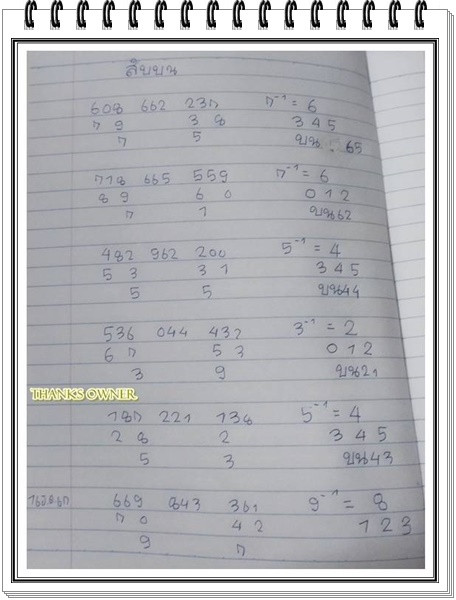 สิบบน
608 662 237 7⁻¹ = 6
7 9 3 8 3 4 5
7 5 บน 65
718 665 559 7⁻¹ = 6
8 9 6 0 0 1 2
7 1 บน62
482 962 200 5⁻¹ = 4
5 3 3 1 3 4 5
5 5 บน44
536 044 432 3⁻¹ = 2
6 7 5 3 0 1 2
3 9 บน21
THANKS OWNER.
187 221 138 5⁻¹ = 4
2 8 2 3 4 5
5 3 บน43
669 843 361 9⁻¹ = 8
7 0 4 2 1 2 3
9 7